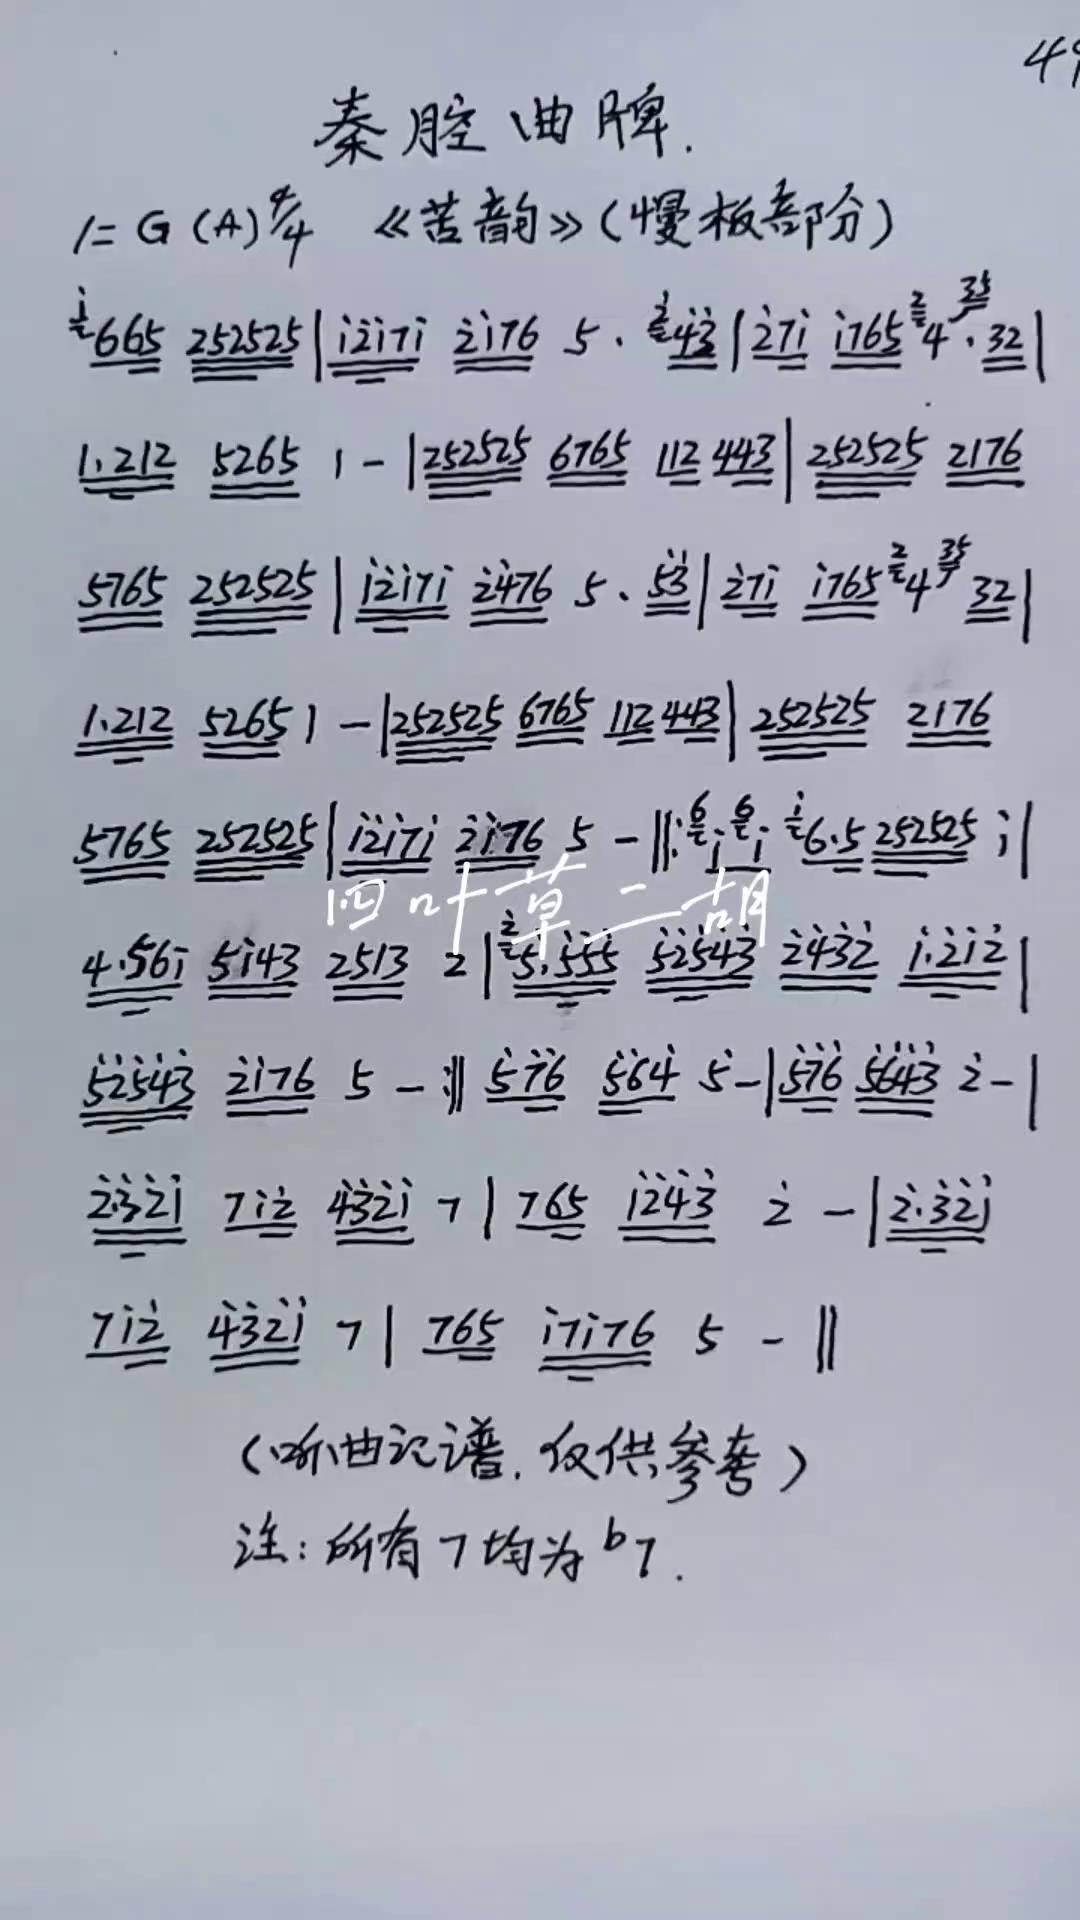 49
秦腔曲牌.
1=G(A)4/4 《苦韵》(慢板部分)
i665 252525|i2̇i7i 2̇i76 5· 2̇4̇3̇|2̇7i i765 24·35 32|
1.212 5265 1-|252525 6765 112 443|252525 2176
5765 252525|i2̇i7i 2̇4̇76 5· 5̇3̇|2̇7i i765 24 35 32|
1.212 5265 1-|252525 6765 112 443|252525 2176
5765 252525|i2̇i7i 2̇i76 5-‖:6i 6i i6.5 252525 i|
4.56i 5i43 2513 2|2̇5̇.5̇5̇5̇ 5̇2̇5̇4̇3̇ 2̇4̇3̇2̇ i.2̇i2̇|
四叶草二胡
5̇2̇5̇4̇3̇ 2̇i76 5-:‖ 5̇7̇6̇ 5̇6̇4̇ 5̇-|5̇7̇6̇ 5̇6̇4̇3̇ 2̇-|
2̇.3̇2̇i 7i2̇ 4̇3̇2̇i 7|765 i2̇4̇3̇ 2̇-|2̇.3̇2̇i
7i2̇ 4̇3̇2̇i 7|765 i7i76 5-‖
(听曲记谱,仅供参考)
注:所有7均为b7.